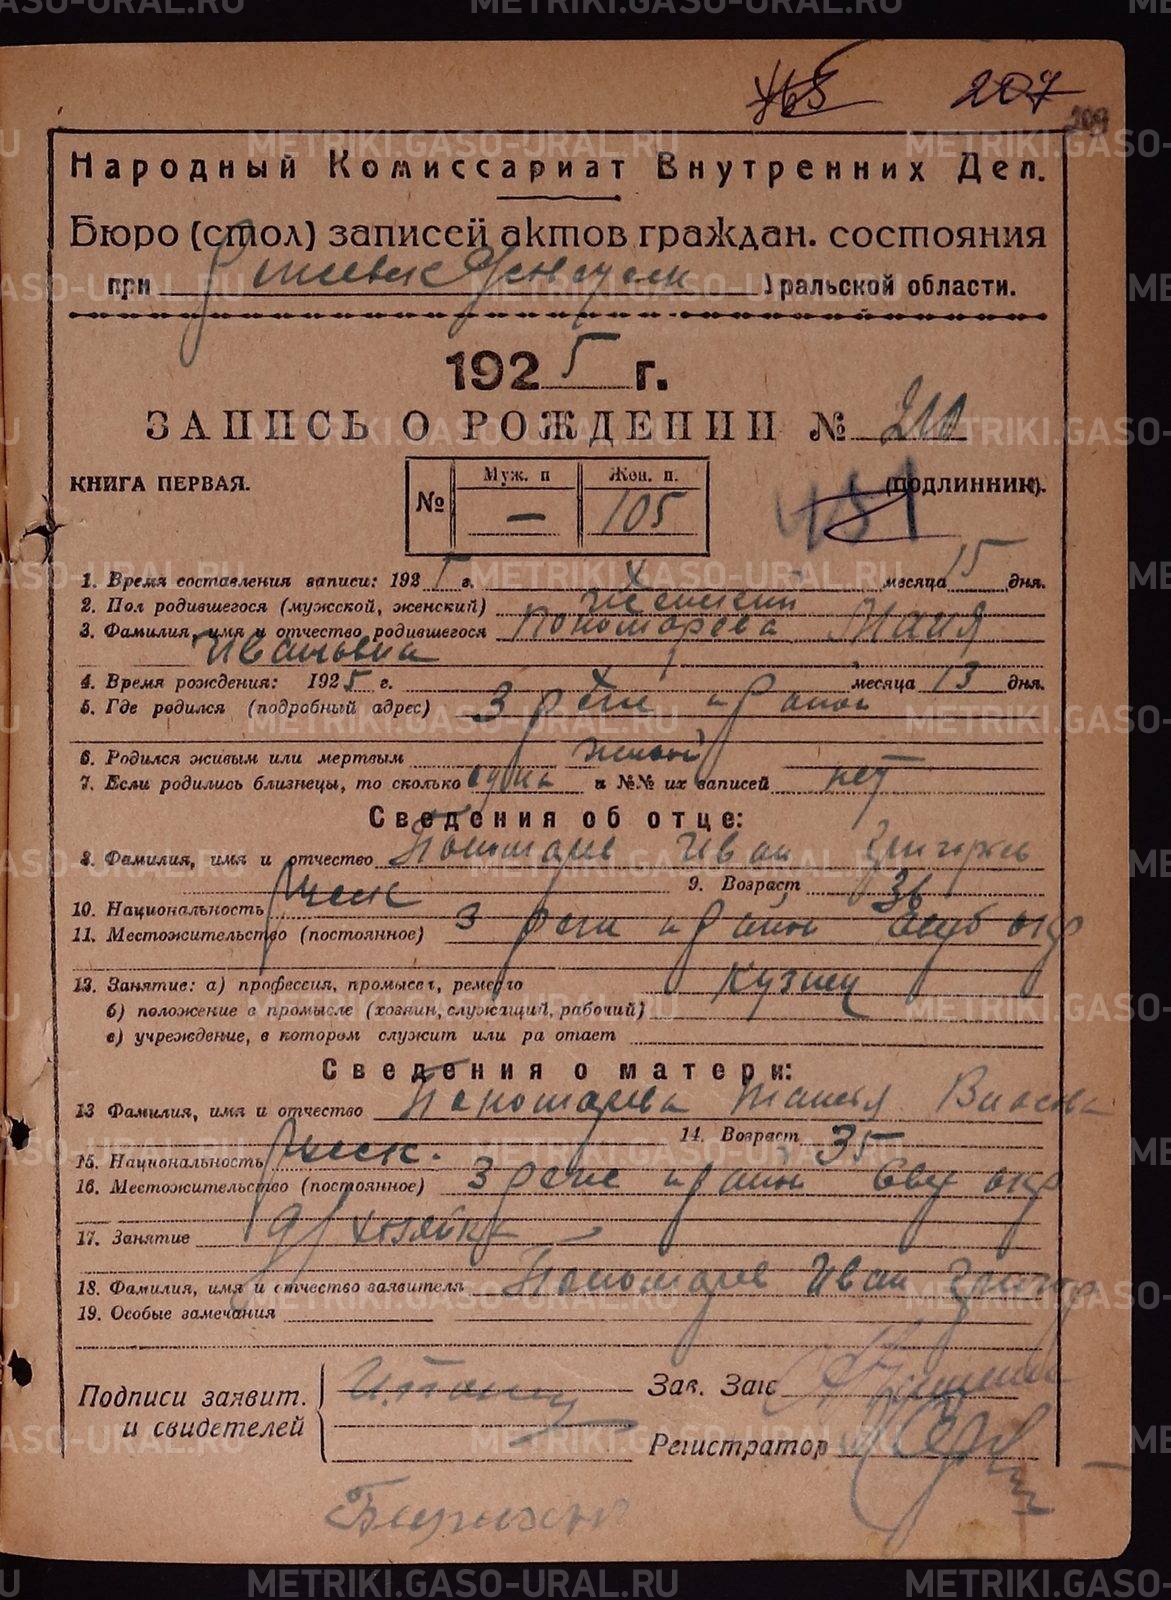 207
209
Народный Комиссариат Внутренних Дел.
Бюро (стол) записей актов граждан. состояния
при Уральской области.
1925 г.
ЗАПИСЬ О РОЖДЕНИИ № 210
КНИГА ПЕРВАЯ. (подлинник).
Муж. п Жен. п.
№ — 105
481
1. Время составления записи: 1925 г. X месяца 15 дня.
2. Пол родившегося (мужской, женский) Женский
3. Фамилия, имя и отчество родившегося Пономарева Маия
Ивановна
4. Время рождения: 1925 г. X месяца 13 дня.
5. Где родился (подробный адрес)
6. Родился живым или мертвым живой
7. Если родились близнецы, то сколько одна и №№ их записей нет
Сведения об отце:
8. Фамилия, имя и отчество Пономарев Иван Григорьев
9. Возраст 36
10. Национальность Русск
11. Местожительство (постоянное) окр
12. Занятие: а) профессия, промысел, ремесло Кузнец
б) положение в промысле (хозяин, служащий, рабочий)
в) учреждение, в котором служит или ра отает
Сведения о матери:
13 Фамилия, имя и отчество Пономарева
14. Возраст 35
15. Национальность Русск.
16. Местожительство (постоянное) окр
17. Занятие д/хозяйка
18. Фамилия, имя и отчество заявителя Пономарев Иван Григор
19. Особые замечания
Подписи заявит. Зав. Загс
и свидетелей
Регистратор
METRIKI.GASO-URAL.RU